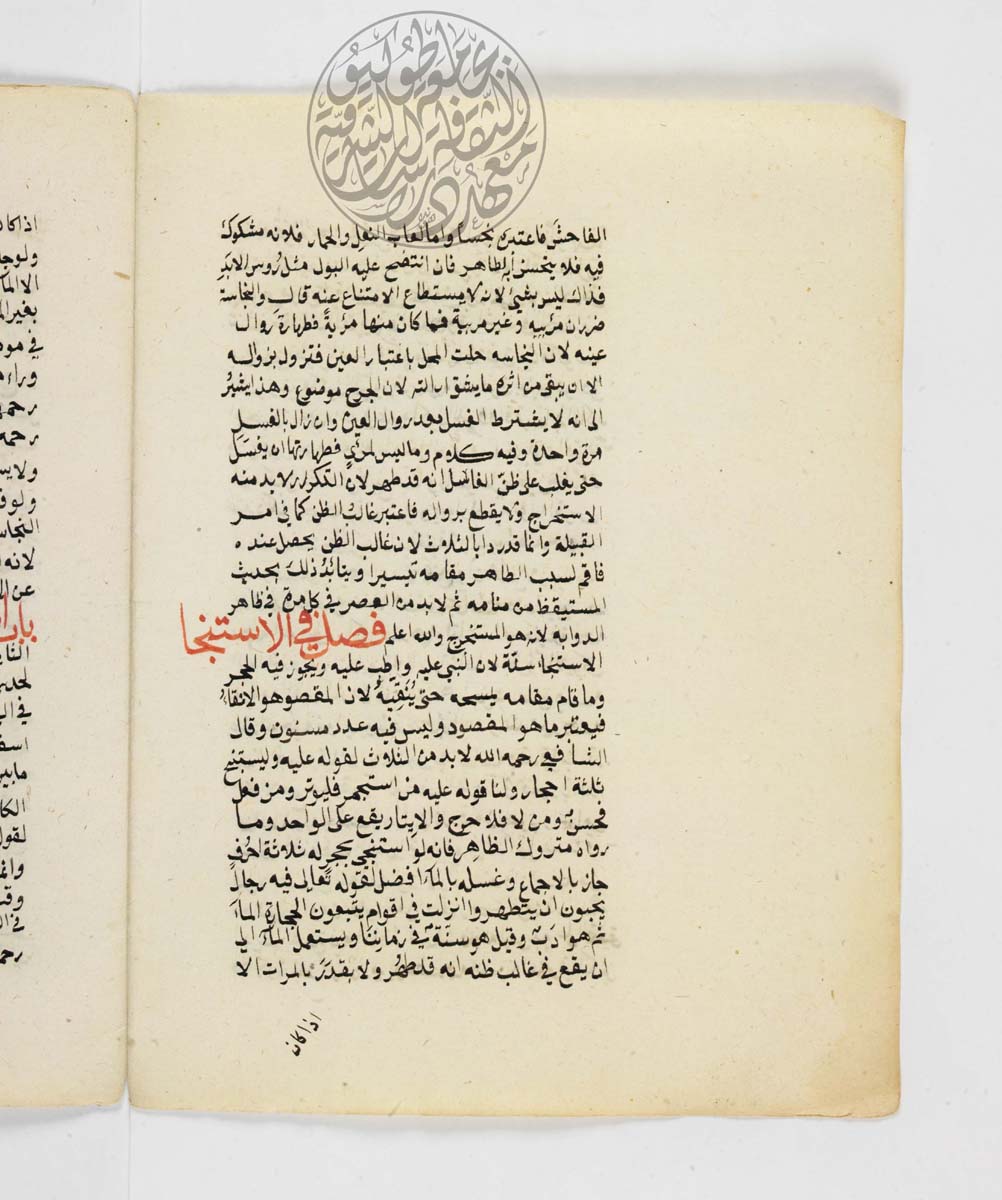 الفاحش فاعتبره نجسا واما لعاب البغل والحمار فلانه مشكوك
فيه فلا ينجس به الطاهر فان انتضح عليه البول مثل رؤس الابر
فذاك ليس بشئ لانه لا يستطاع الامتناع عنه قال والنجاسة
ضربان مرئيه وغير مريية فما كان منها مرئية فطهارة زوال
عينه لان النجاسه حلت المحل باعتبار العين فتزول بزواله
الا ان يبقى من اثره ما يشق ازالته لان الحرج موضوع وهذا يشير
الى انه لا يشترط الغسل بعد زوال العين وان زال بالغسل
مرة واحدة وفيه كلام وما ليس لمرئي فطهارتها ان يغسل
حتى يغلب على ظن الغاسل انه قد طهر لان التكرار لا بد منه
الاستخراج ولا يقطع بزواله فاعتبر غالب الظن كما في امر
القبيلة وانما قدر دا بالثلاث لان غالب الظن يحصل عنده
فاقم لسبب الظاهر مقامه تيسيرا ويتائد ذلك بحديث
المستيقظ من منامه ثم لا بد من العصر في كل مرة في ظاهر
الدوابه لانه هو المستخرج والله اعلم فصل في الاستنجا
الاستنجا سنة لان النبي عليه واظب عليه ويجوز فيه الحجر
وما قام مقامه يمسحه حتى ينقيه لان المقصو هو الانقاء
فيعتبر ما هو المقصود وليس فيه عدد مسنون وقال
الشافعي رحمه الله لا بد من الثلاث لقوله عليه وليستنج
ثلثة احجار ولنا قوله عليه من استجمر فليوتر ومن فعل
فحسن ومن لا فلا حرج والايتار يقع على الواحد وما
رواه متروك الظاهر فانه لو استنجى بحجر له ثلاثة احرف
جاز بالاجماع وغسله بالماء افضل لقوله تعالى فيه رجال
يحبون ان يتطهروا انزلت في اقوام يتبعون الحجارة الماء
ثم هو ادب وقيل هو سنة في زماننا ويستعمل الماء الى
ان يقع في غالب ظنه انه قد طهر ولا يقدر بالمرات الا
اذا كان